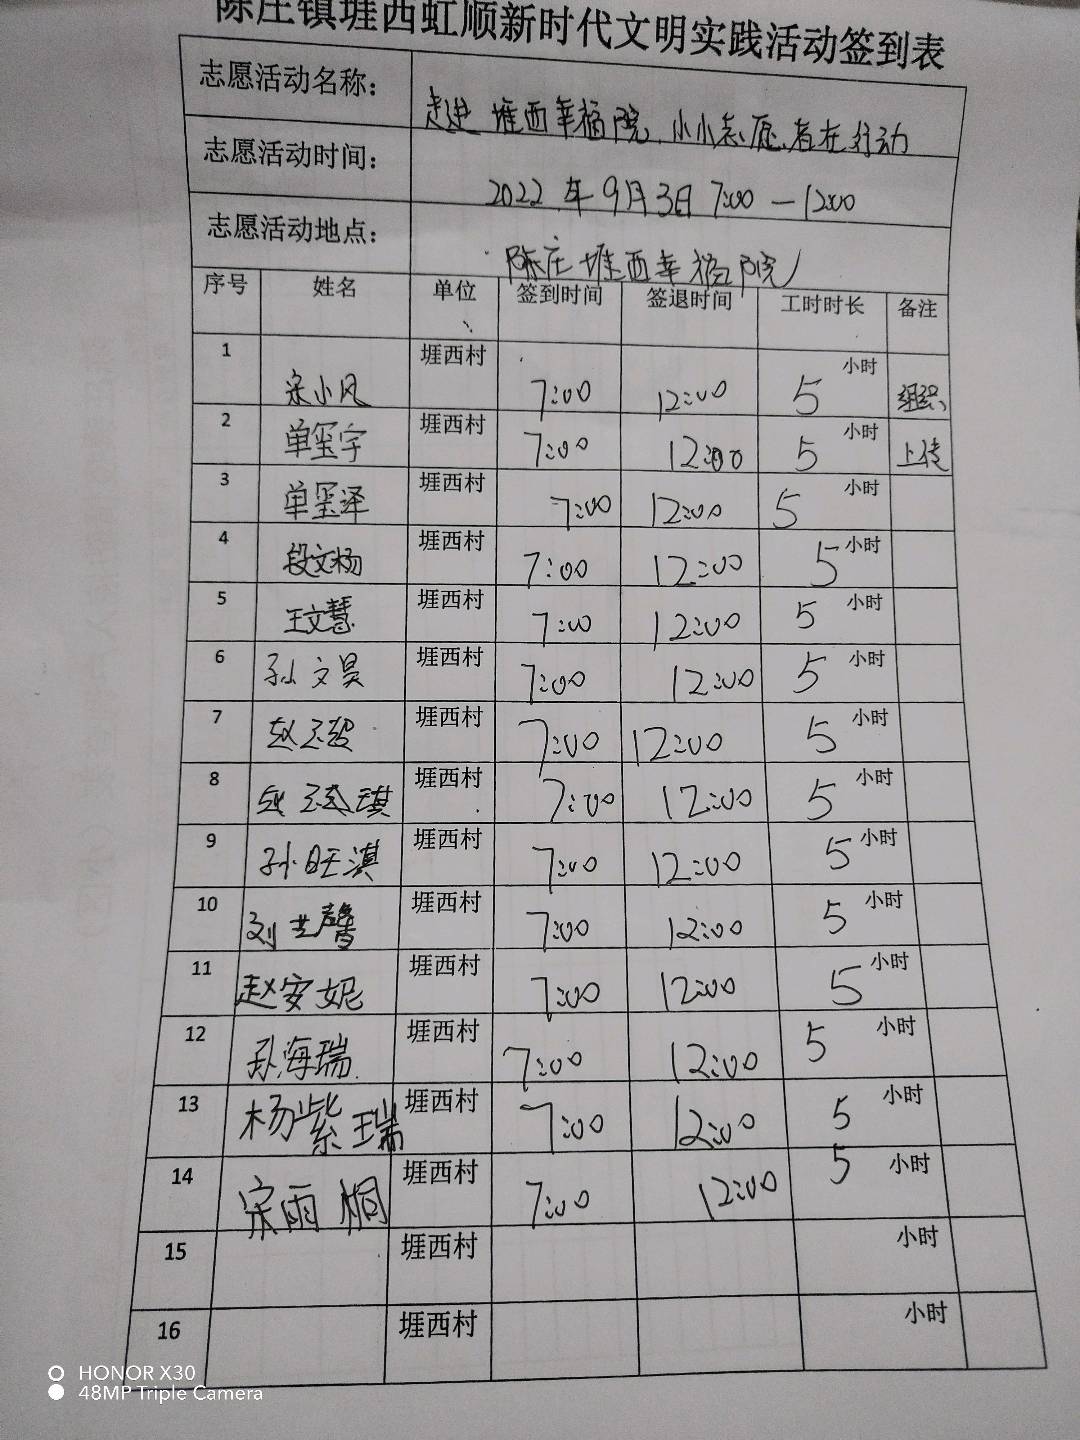 陈庄镇堐西虹顺新时代文明实践活动签到表
志愿活动名称： 走进堐西幸福院，小小志愿者在行动
志愿活动时间： 2022年9月3日 7:00—12:00
志愿活动地点： 陈庄堐西幸福院
序号 姓名 单位 签到时间 签退时间 工时时长 备注
1 宋小风 堐西村 7:00 12:00 5 小时 组织
2 单玺宇 堐西村 7:00 12:00 5 小时 上传
3 单玺泽 堐西村 7:00 12:00 5 小时
4 段文杨 堐西村 7:00 12:00 5 小时
5 王文慧 堐西村 7:00 12:00 5 小时
6 孙文昊 堐西村 7:00 12:00 5 小时
7 赵 堐西村 7:00 12:00 5 小时
8 赵 琪 堐西村 7:00 12:00 5 小时
9 孙旺淇 堐西村 7:00 12:00 5 小时
10 刘艺馨 堐西村 7:00 12:00 5 小时
11 赵安妮 堐西村 7:00 12:00 5 小时
12 孙海瑞 堐西村 7:00 12:00 5 小时
13 杨紫瑞 堐西村 7:00 12:00 5 小时
14 宋雨桐 堐西村 7:00 12:00 5 小时
15 堐西村 小时
16 堐西村 小时
HONOR X30
48MP Triple Camera